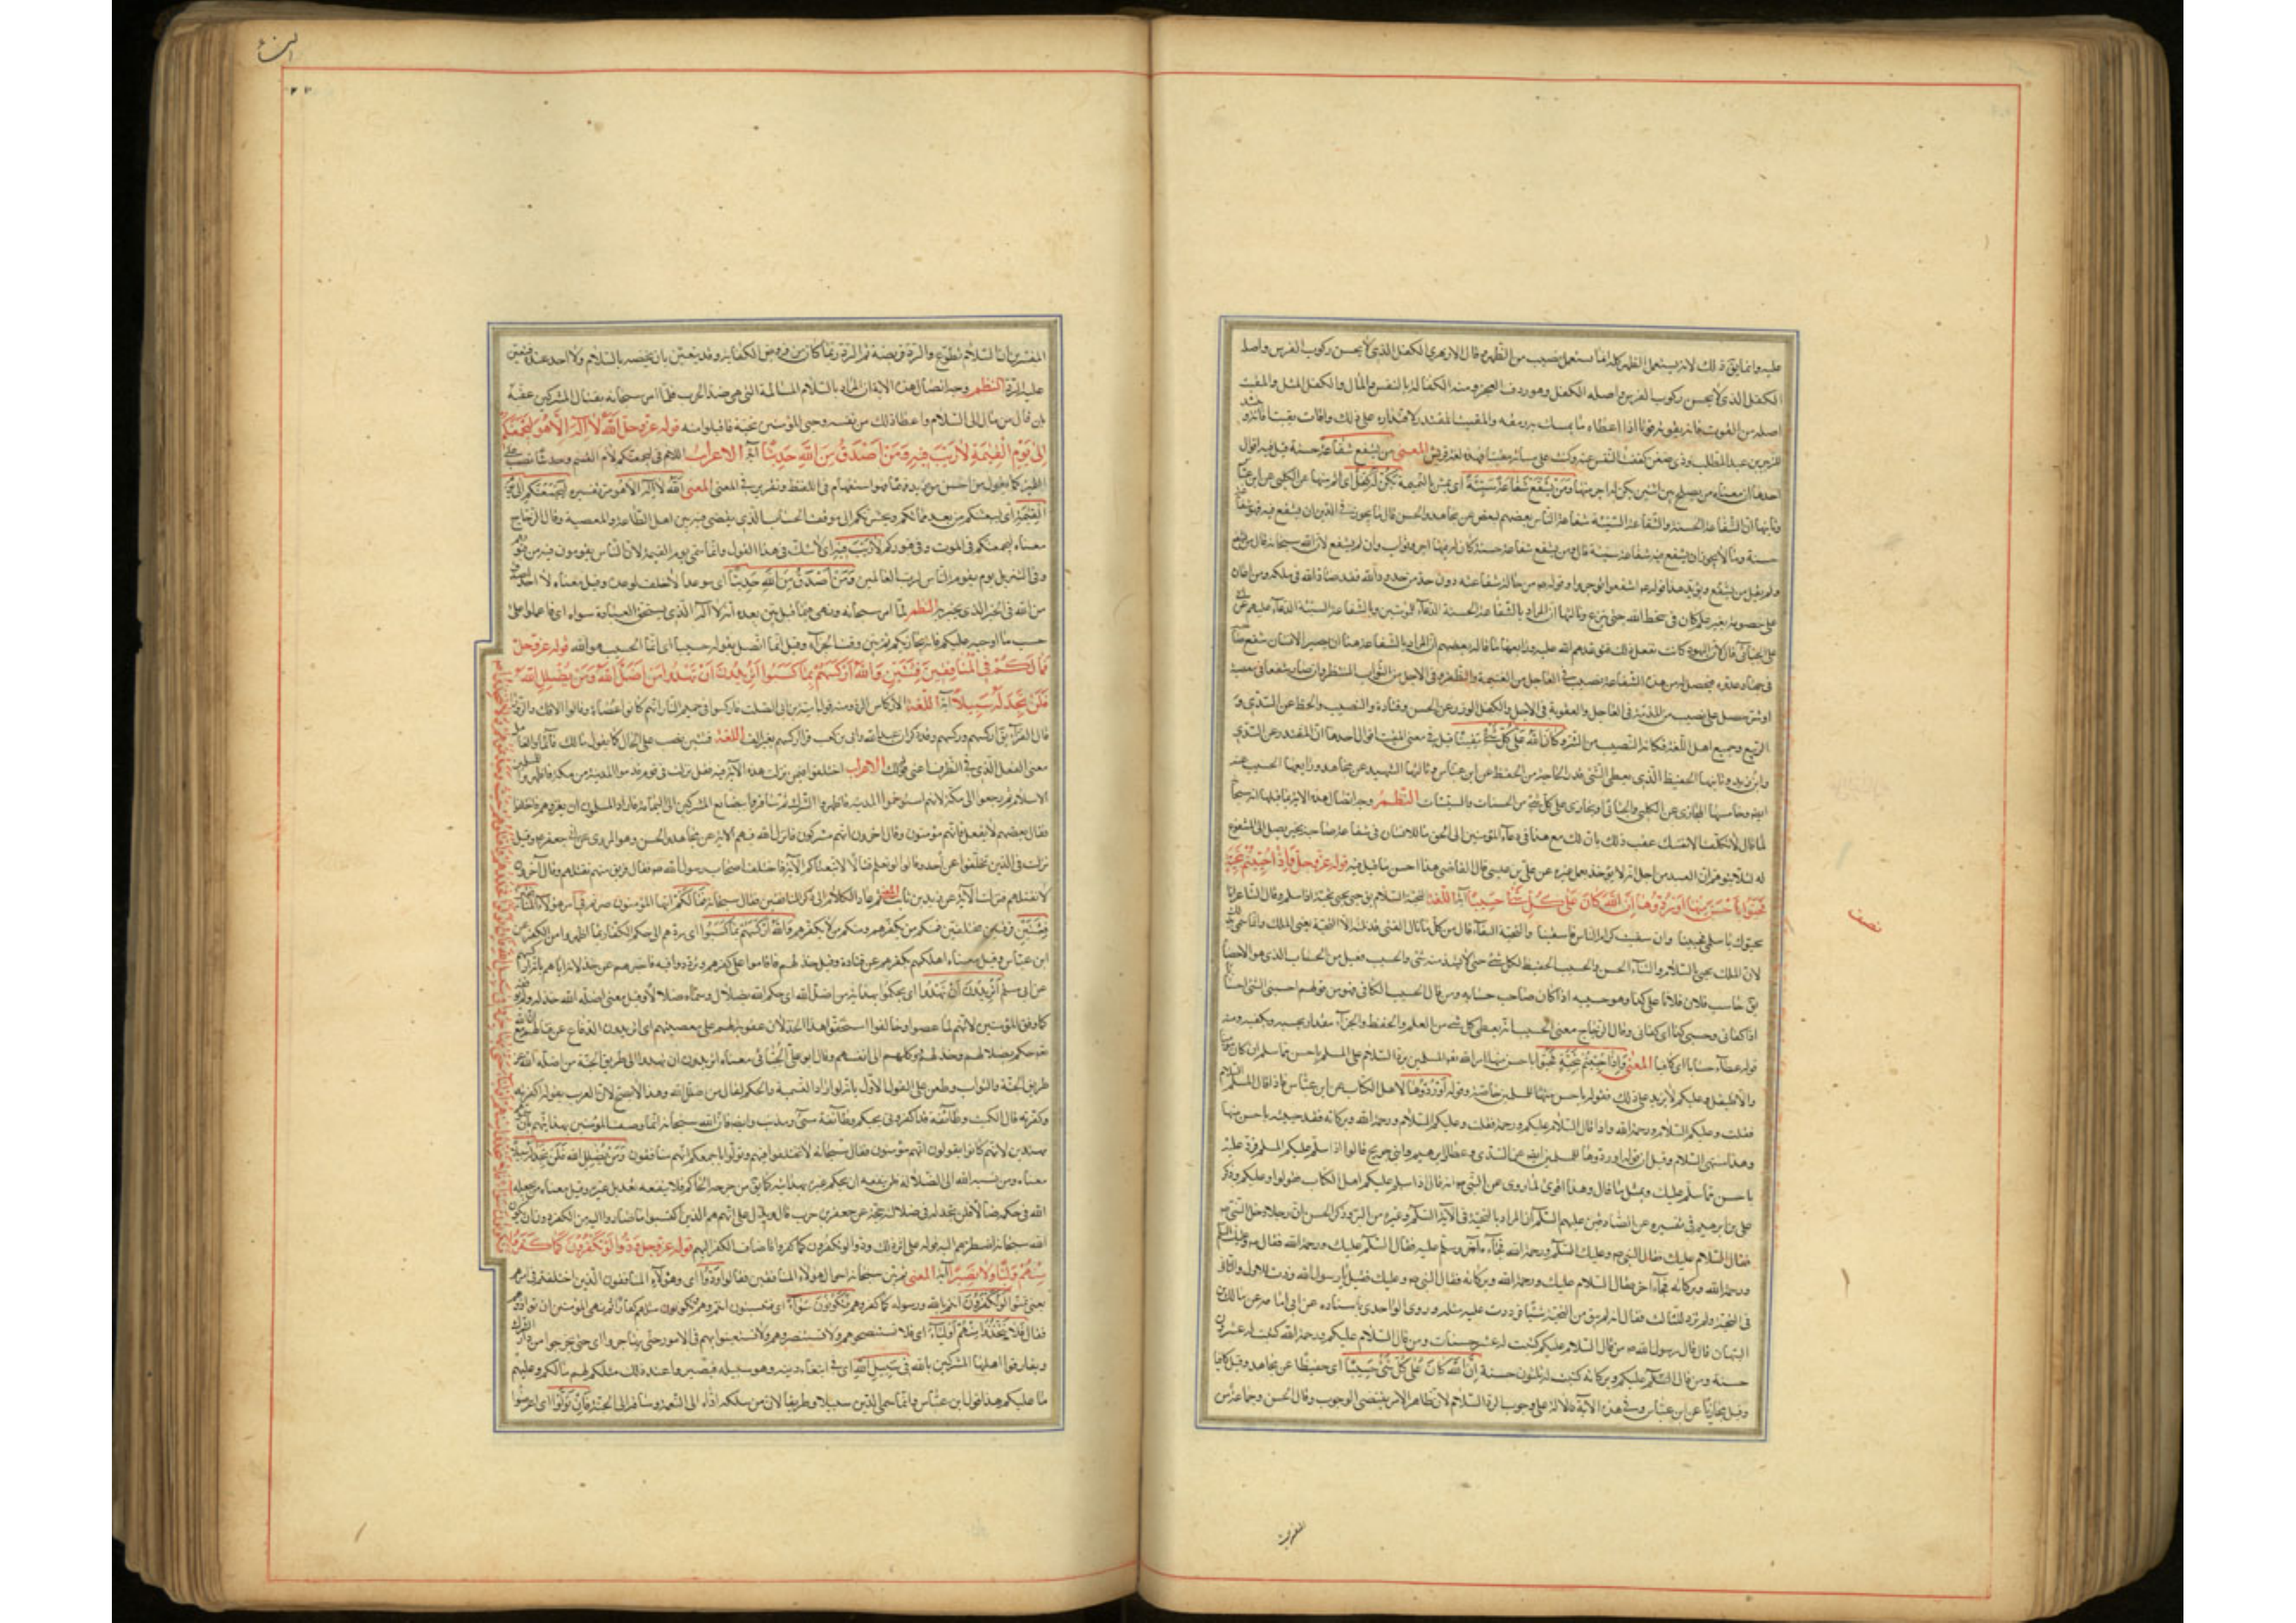 عليه وانما يق ذلك لانه لم يستعمل الظهر كله انما استعمل نصيب من الظهر وقال الازهري الكفل الذي لا يحسن ركوب الفرس واصله
الكفل الذي لا يحسن ركوب الفرس واصله الكفل وهو ردف العجز ومنه الكفالة بالنفس والمال والكفل المثل والمقيت
اصله من القوت فانه يقوته قوتا اذا اعطاه ما يمسك به رمقه والمقيت المقتدر لاقتداره على ذلك
للزبير بن عبد المطلب وذي ضغن كففت النفس عنه وكنت على مسائته مقيتا فهذه لغة قريش المعنى من يشفع شفاعة حسنة قيل فيه اقوال
احدها ان معناه من يصلح بين اثنين يكن له اجر منها ومن يشفع شفاعة سيئة اى يمشي بالنميمة يكن له كفل اى اثم منها عن الكلبي عن ابن عباس
وثانيها ان الشفاعة الحسنة والشفاعة السيئة شفاعة الناس بعضهم لبعض عن مجاهد والحسن قال ما يجوز في الدين ان يشفع فيه فهو شفاعة
حسنة وما لا يجوز ان يشفع فيه فهو شفاعة سيئة قال ومن يشفع شفاعة حسنة كان له فيها اجر وثواب وان لم يشفع لان الله سبحانه قال من يشفع
ولم يقل من يشفع ويؤيد هذا قوله ع اشفعوا توجروا وقوله ص من حالت شفاعته دون حد من حدود الله فقد ضاد الله في ملكه ومن اعان
على خصومة بغير علم كان في سخط الله حتى ينزع وثالثها ان المراد بالشفاعة الحسنة الدعاء للمؤمنين وبالشفاعة السيئة الدعاء عليهم عن
على الجبائي قال لان اليهود كانت تفعل ذلك فتوعدهم الله عليه ورابعها ما قاله بعضهم ان المراد بالشفاعة هنا ان يصير الانسان شفع صاحبه
في جهاد عدوه فيحصل له من هذه الشفاعة نصيب في العاجل من الغنيمة والظفر وفي الاجل من الثواب المنتظر وان صار شفعا في معصية
او شر حصل على نصيب من المذمة في العاجل والعقوبة في الاجل والكفل الوزر عن الحسن وقتادة والنصيب والحظ عن السدي و
الربيع وجميع اهل اللغة فكانه النصيب من الشر وكان الله على كل شيء مقيتا قيل في معنى المقيت اقوال احدها انه المقتدر عن السدي
وابن زيد وثانيها الحفيظ الذي يعطي الشيء قدر الحاجة من الحفظ عن ابن عباس وثالثها الشهيد عن مجاهد ورابعها الحسيب عنه
ايض وخامسها المجازي عن الكلبي والجبائي اي يجازى على كل شيء من الحسنات والسيئات النظم وجه اتصال هذه الاية بما قبلها انه سبحانه
لما قال لا تكلف الا نفسك عقب ذلك بان لك مع هذا في دعاء المؤمنين الى الحق ما للانسان في شفاعة صاحبه لخير يصل الى المشفوع
له لئلا يتوهم ان العبد من اجل انه لا يؤخذ بعمل غيره عن علي بن عيسى قال القاضي هذا احسن ما قيل فيه قوله عز وجل واذا حييتم بتحية
فحيوا باحسن منها او ردوها ان الله كان على كل شيء حسيبا آية اللغة التحية السلام يق حيى يحيى تحية اذا سلم وقال الشاعر انا
محيوك يا سلمى فحيينا وان سقيت كرام الناس فاسقينا والتحية البقاء قال من كل ما نال الفتى قد نلته الا التحية يعني الملك وانما سمي بذلك
لان الملك يحيى بالسلام والثناء الحسن والحسيب الحفيظ لكل شيء حتى لا يشذ منه شيء والحسيب فعيل من الحساب الذي هو الاحصاء
يق حاسب فلان فلانا على كذا وهو حسيبه اذا كان صاحب حسابه ومن قال الحسيب الكافي فهو من قولهم احسبني الشيء احسابا
اذا كفاني وحسبي كذا اى كفاني وقال الزجاج معنى الحسيب انه يعطى كل شيء من العلم والحفظ والجزاء مقدار ما يحسبه ويكفيه ومنه
قوله عطاء حسابا اى كافيا المعنى واذا حييتم بتحية فحيوا باحسن منها امر الله تعه المسلمين برد السلام على المسلم باحسن مما سلم ان كان مؤمنا
والا فليقل وعليكم لا يزيد على ذلك فقوله باحسن منها للمسلمين خاصة وقوله او ردوها لاهل الكتاب عن ابن عباس فاذا قال المسلم السلام عليكم
فقلت وعليكم السلام ورحمة الله واذا قال السلام عليكم ورحمة الله فقلت وعليكم السلام ورحمة الله وبركاته فقد حييته باحسن منها
وهذا منتهى السلام وقيل ان قوله او ردوها للمسلمين ايض عن السدي وعطا وابراهيم وابن جريج قالوا اذا سلم عليكم المسلم فرد عليه
باحسن مما سلم عليك وبمثل ما قال وهذا اقوى لما روى عن النبي ص انه قال اذا سلم عليكم اهل الكتاب فقولوا وعليكم وذكر
على بن ابرهيم في تفسيره عن الصادقين عليهم السلم ان المراد بالتحية في الآية السلم وغيره من البر وذكر الحسن ان رجلا دخل على النبي ص
فقال السلام عليك فقال النبي ص وعليك السلم ورحمة الله فجاءه آخر وسلم عليه فقال السلم عليك ورحمة الله فقال ص وعليك السلم
ورحمة الله وبركاته فجاء آخر فقال السلام عليك ورحمة الله وبركاته فقال النبي ص وعليك فقيل يا رسول الله زدت للاول والثاني
في التحية ولم تزد للثالث فقال انه لم يبق من التحية شيئا فرددت عليه مثله وروى الواحدي باسناده عن ابي امامة عن مالك بن
التيهان قال قال رسول الله ص من قال السلام عليكم كتبت له عشر حسنات ومن قال السلام عليكم ورحمة الله كتبت له عشرون
حسنة ومن قال السلم عليكم وبركاته كتبت له ثلثون حسنة ان الله كان على كل شيء حسيبا اى حفيظا عن مجاهد وقيل كافيا
وقيل مجازيا عن ابن عباس وفي هذه الآية دلالة على وجوب رد السلام لان ظاهر الامر يقتضى الوجوب وقال الحسن وجماعة من
نصف
المفسرين
النساء
المفسرين ان السلام تطوع والرد فريضة ثم الرد ربما كان من فروض الكفاية وقد يتعين بان يخصه بالسلام ولا احد عنده فيتعين
عليه الرد النظم وجه اتصال هذه الاية ان المراد بالسلام المسالمة التى هى ضد الحرب فلما امر سبحانه بقتال المشركين عقبه
بان قال من مال الى السلام واعطى ذلك من نفسه وحيى المؤمنين بتحية فاقبلوا منه قوله عز وجل الله لا اله الا هو ليجمعنكم
الى يوم القيمة لا ريب فيه ومن اصدق من الله حديثا آية الاعراب اللام في ليجمعنكم لام القسم وحديثا نصب على
التمييز كما تقول من احسن من زيد وجها استفهام في اللفظ وتقرير في المعنى المعنى الله لا اله الا هو مر تفسيره ليجمعنكم الى يوم
القيمة اى ليبعثنكم من بعد مماتكم ويحشرنكم الى موقف الحساب الذي يقضى فيه بين اهل الطاعة والمعصية وقال الزجاج
معناه ليجمعنكم في الموت وفي قبوركم لا ريب فيه اى لا شك في هذا القول وانما سمى يوم القيمة لان الناس يقومون فيه من قبورهم
وفي التنزيل يوم يقوم الناس لرب العالمين ومن اصدق من الله حديثا اى موعدا لا خلف لوعده وقيل معناه لا احد اصدق
من الله في الخبر الذي يخبر به النظم لما امر سبحانه ونهى فيما قبل بين بعده انه لا اله الذي يستحق العبادة سواه اى فاعملوا على
حسب ما اوجبه عليكم فانه يجازيكم به ثم بين وقت الجزاء وقيل انما اتصل بقوله حسيبا اى انما الحسيب هو الله قوله عز وجل
فما لكم في المنافقين فئتين والله اركسهم بما كسبوا اتريدون ان تهدوا من اضل الله ومن يضلل الله
فلن تجد له سبيلا آية اللغة الاركاس الرد ومنه قول امية بن ابي الصلت فاركسوا في حميم النار انهم كانوا عصاة وقالوا الافك والزورا
قال الفراء يق اركسهم وركسهم وقد ذكر ان عبد الله وابى بن كعب قرا ركسهم بغير الف اللغة فئتين نصب على الحال كما يقول ما لك قائما والعامل
معنى الفعل الذي في الظرف اعنى قولك الاعراب اختلفوا فيمن نزلت هذه الآية فيه فقيل نزلت في قوم قدموا المدينة من مكة فاظهروا للمسلمين
الاسلام ثم رجعوا الى مكة لانهم استوخموا المدينة فاظهروا الشرك ثم سافروا ببضايع المشركين الى اليمامة فاراد المسلمون ان يغزوهم فاختلفوا
فقال بعضهم لا نفعل فانهم مؤمنون وقال آخرون انهم مشركون فانزل الله فيهم الآية عن مجاهد والحسن وهو المروى عن ابي جعفر ع وقيل
نزلت في الذين تخلفوا عن احد وقالوا لو نعلم قتالا لاتبعناكم الآية فاختلف اصحاب رسول الله ص فقال فريق منهم نقتلهم وقال آخرون
لا نقتلهم فنزلت الآية عن زيد بن ثابت المعنى ثم عاد الكلام الى ذكر المنافقين فقال سبحانه فما لكم ايها المؤمنون صرتم في امر هؤلاء المنافقين
فئتين اى فرقتين مختلفتين فمنكم من يكفرهم ومنكم من لا يكفرهم والله اركسهم بما كسبوا اى ردهم الى حكم الكفار بما اظهروا من الكفر عن
ابن عباس وقيل معناه اهلكهم بكفرهم عن قتادة وقيل خذلهم فاقاموا على كفرهم وترددوا فيه فاخبرهم عن خذلانه اياهم بانه اركسهم
عن ابي مسلم اتريدون ان تهدوا اى يحكموا بهداية من اضل الله اى حكم الله بضلاله وسماه ضالا وقيل معنى اضله الله خذله ولم يوفقه
كما وفق المؤمنين لانهم لما عصوا وخالفوا استحقوا هذا الخذلان عقوبة لهم على معصيتهم اى اتريدون الدفاع عن قتالهم مع ان الله
تعه حكم بضلالهم وخذلهم ووكلهم الى انفسهم وقال ابو علي الجبائي معناه اتريدون ان تهدوا الى طريق الجنة من اضله الله عن
طريق الجنة والثواب وطعن على القول الاول بانه لو اراد التسمية والحكم لقال من ضلل الله وهذا لا يصح لان العرب يقول اكفرته
وكفرته قال الكميت وطائفة قد اكفروني بحبكم وطائفة قالوا مسئ ومذنب وايضا فان الله سبحانه انما وصف المؤمنين بهدايتهم بان
تهتدين لانهم كانوا يقولون انهم مؤمنون فقال سبحانه لا تختلفوا فيهم وقولوا باجمعكم انهم منافقون ومن يضلل الله فلن تجد له سبيلا
معناه ومن نسبه الله الى الضلالة فلن ينفعه ان يحكم غيره بهدايته كما يق من جرحه الحاكم فلا ينفعه تعديل غيره وقيل معناه من يجعله
الله في حكمه ضالا فلن تجد له في ضلالته حجة عن جعفر بن حرب قال ويدل على انهم هم الذين اكتسبوا ما صاروا اليه من الكفر دون ان يكون
الله سبحانه اضطرهم اليه قوله على اثر ذلك ودوا لو تكفرون كما كفروا فاضاف الكفر اليهم قوله عز وجل ودوا لو تكفرون كما كفروا
منهم وليا ولا نصيرا آية المعنى ثم بين سبحانه احوال هؤلاء المنافقين فقال ودوا اى ود هؤلاء المنافقون الذين اختلفتم في امرهم
يعنى تمنوا لو تكفرون انتم بالله ورسوله كما كفروا هم فتكونون سواء اى فتستوون انتم وهم وتكونون مثلهم كفارا ثم نهى المؤمنين ان توادوهم
فقال فلا تتخذوا منهم اولياء اى فلا تستنصحوهم ولا تستنصروهم ولا تستعينوا بهم في الامور حتى يهاجروا اى حتى يخرجوا من دار الشرك
ويفارقوا اهلها المشركين بالله في سبيل الله اى في ابتغاء دينه وهو سبيله فيصيروا عند ذلك مثلكم لهم ما لكم وعليهم
ما عليكم هذا قول ابن عباس وانما سمى الدين سبيلا وطريقا لان من سلكه اداه الى النعمة وساقه الى الجنة فان تولوا اى اعرضوا